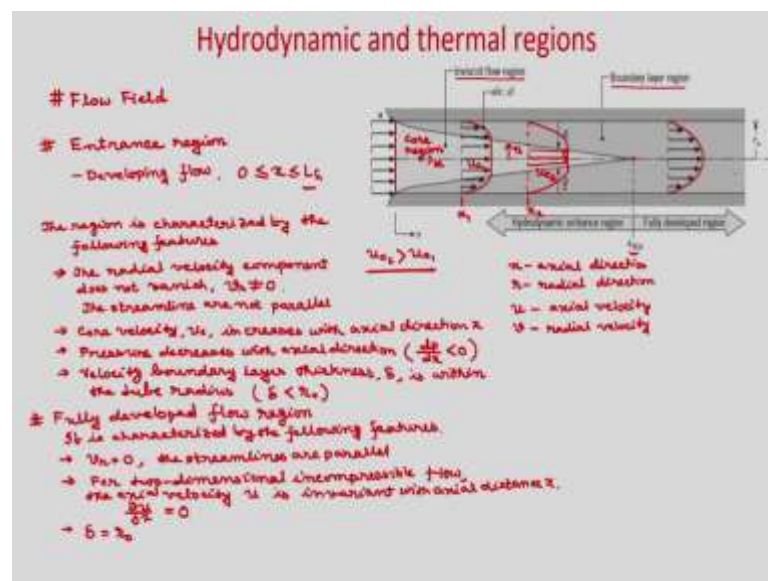 Hydrodynamic and thermal regions
# Flow Field
# Entrance region
- Developing flow, 0 ≤ x ≤ Lh
The region is characterized by the
following features
→ The radial velocity component
does not vanish, vr ≠ 0.
The streamline are not parallel
→ Core velocity, uc, increases with axial direction x
→ Pressure decreases with axial direction (dp/dx < 0)
→ Velocity boundary layer thickness, δ, is within
the tube radius (δ < r₀)
# Fully developed flow region
It is characterized by the following features.
→ vr = 0, the streamlines are parallel
→ For two-dimensional incompressible flow,
the axial velocity u is invariant with axial distance x.
∂u/∂x = 0
→ δ = r₀
Inviscid flow region
Boundary layer region
Core
region
Hydrodynamic entrance region
Fully developed region
x - axial direction
r - radial direction
u - axial velocity
v - radial velocity